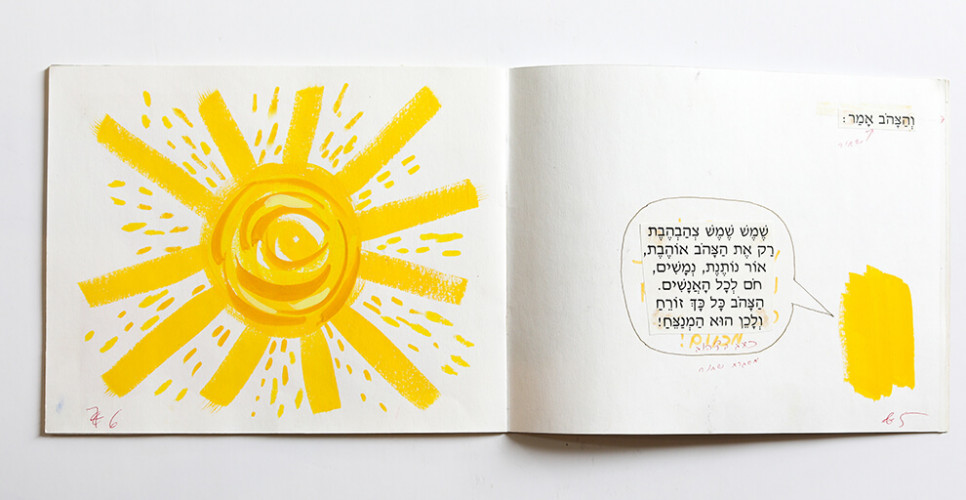 וְהַצָּהֹב אָמַר:
שֶׁמֶשׁ שֶׁמֶשׁ צְהַבְהֶבֶת
רַק אֶת הַצָּהֹב אוֹהֶבֶת,
אוֹר נוֹתֶנֶת, נְמָשִׁים,
חֹם לְכָל הָאֲנָשִׁים.
הַצָּהֹב כָּל כָּךְ זוֹרֵחַ
וְלָכֵן הוּא הַמְנַצֵּחַ!
6
5